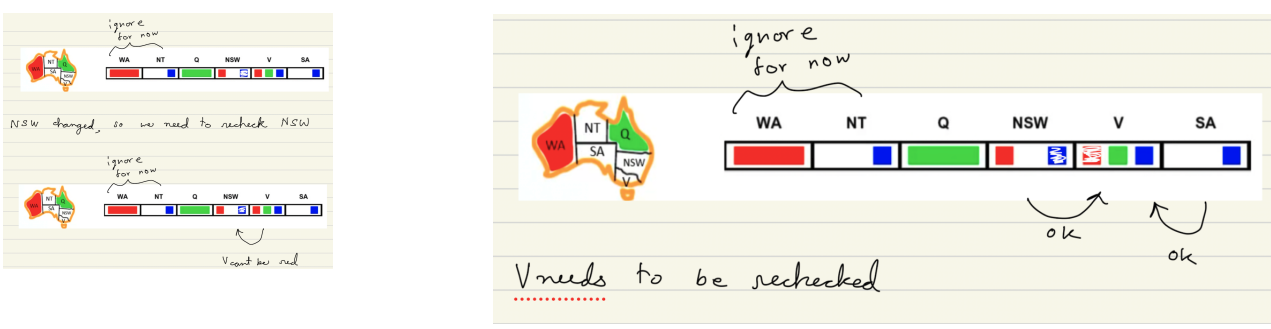 ignore
for now
WA NT Q NSW V SA
WA NT SA Q NSW V
NSW changed, so we need to recheck NSW
ignore
for now
WA NT Q NSW V SA
WA NT SA Q NSW V
V cant be red
ignore
for now
WA NT Q NSW V SA
WA NT SA Q NSW V
ok
ok
V needs to be rechecked